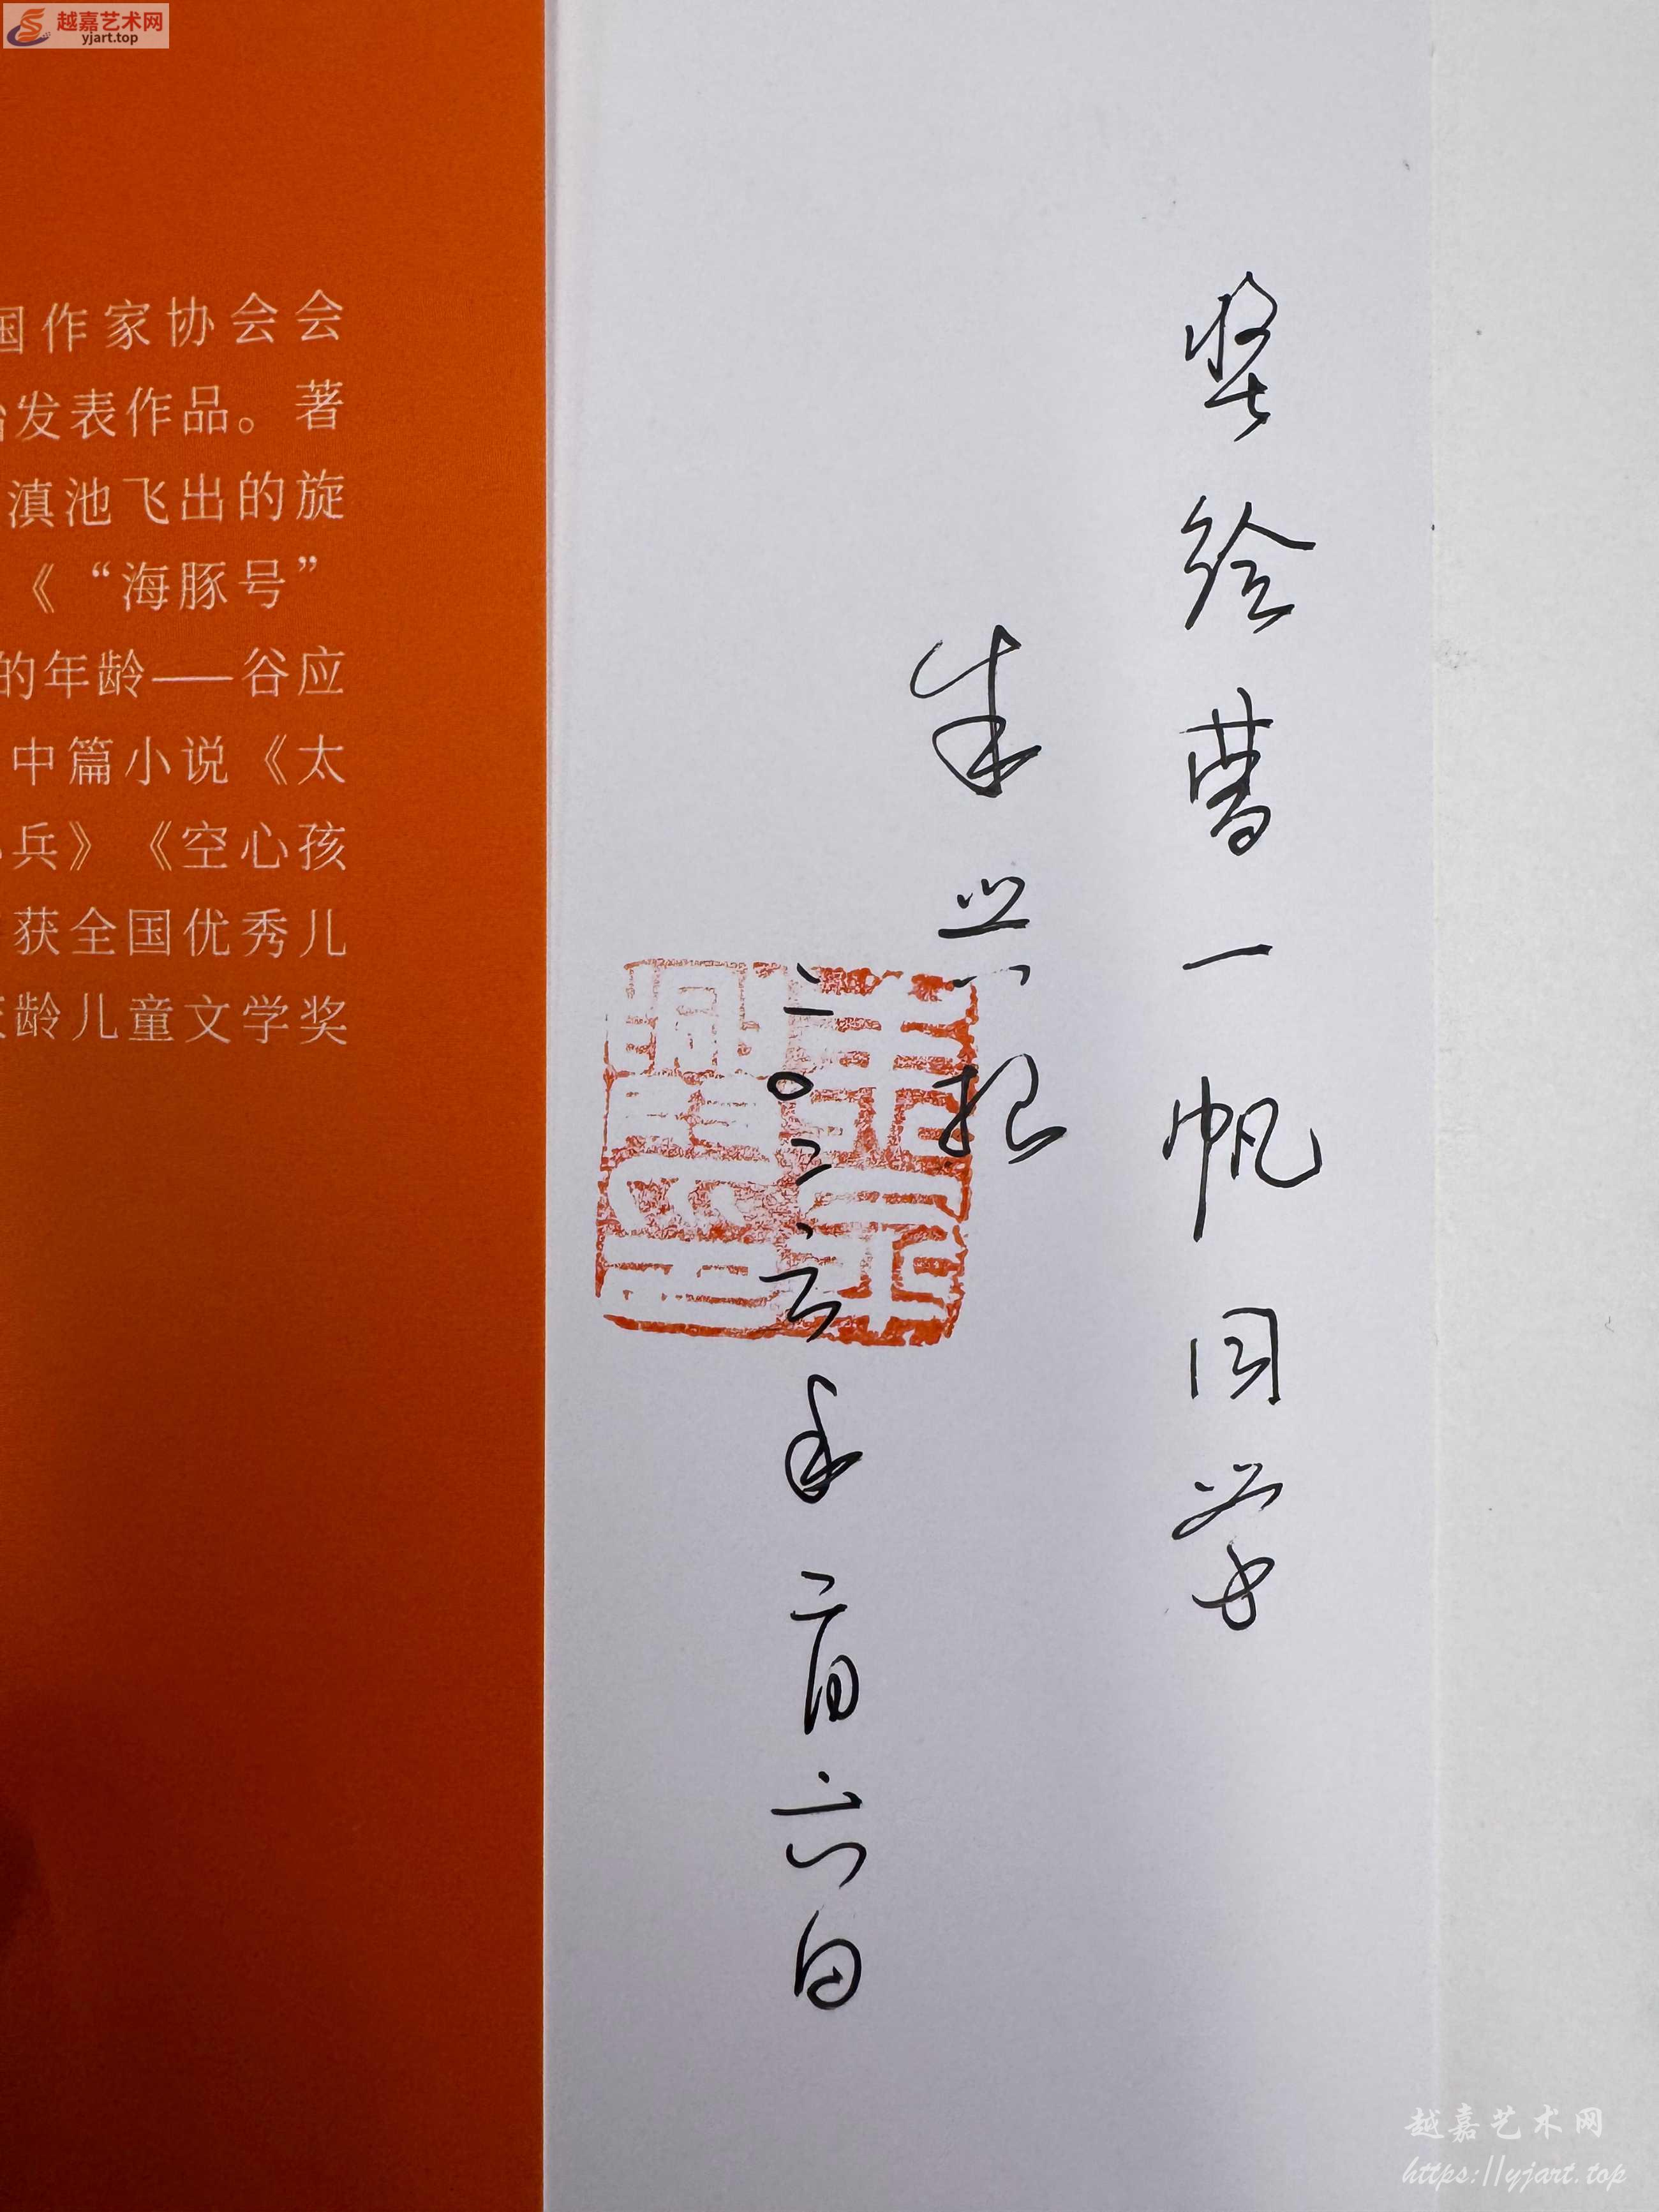 越嘉艺术网
yjart.top
国作家协会会
发表作品。著
滇池飞出的旋
《“海豚号”
的年龄——谷应
中篇小说《太
兵》《空心孩
获全国优秀儿
龄儿童文学奖
奖给曹一帆同学
朱兴根
二〇二三年二月六日
越嘉艺术网
https://yjart.top